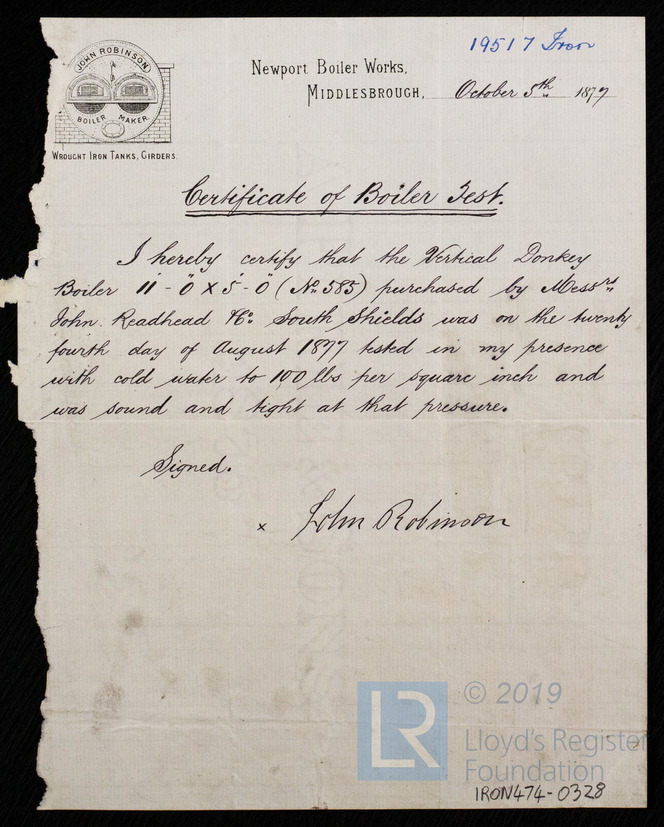 19517 Iron
JOHN ROBINSON
BOILER MAKER.
WROUGHT IRON TANKS, GIRDERS.
Newport Boiler Works,
MIDDLESBROUGH, October 5th 1877
Certificate of Boiler Test.
I hereby certify that the Vertical Donkey
Boiler 11-0 x 5-0 (No. 585) purchased by Messrs
John Readhead & Co. South Shields was on the twenty
fourth day of August 1877 tested in my presence
with cold water to 100 lbs per square inch and
was sound and tight at that pressure.
Signed.
x John Robinson
LR
© 2019
Lloyd's Register
Foundation
IRON474-0328